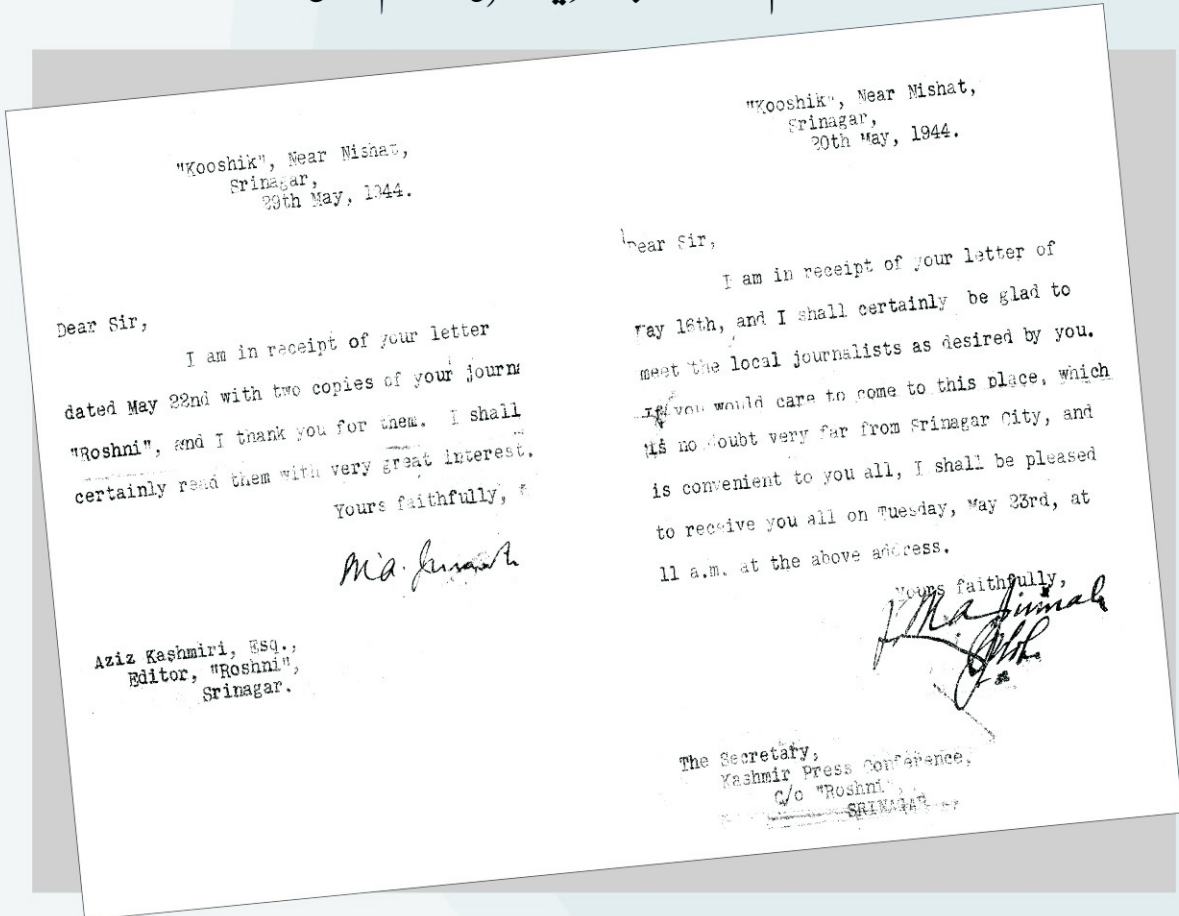 "Kooshik", Near Nishat,
Srinagar,
29th May, 1944.
Dear Sir,
I am in receipt of your letter
dated May 22nd with two copies of your journa
"Roshni", and I thank you for them. I shall
certainly read them with very great interest.
Yours faithfully,
M.A. Jinnah
Aziz Kashmiri, Esq.,
Editor, "Roshni",
Srinagar.
"Kooshik", Near Nishat,
Srinagar,
20th May, 1944.
Dear Sir,
I am in receipt of your letter of
May 16th, and I shall certainly be glad to
meet the local journalists as desired by you.
If you would care to come to this place, which
is no doubt very far from Srinagar City, and
is convenient to you all, I shall be pleased
to receive you all on Tuesday, May 23rd, at
11 a.m. at the above address.
Yours faithfully,
M.A. Jinnah
The Secretary,
Kashmir Press Conference,
C/o "Roshni",
SRINAGAR